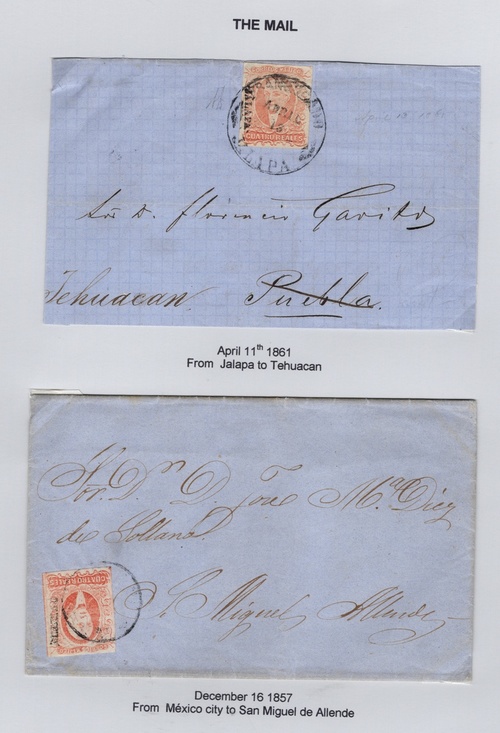 THE MAIL
JALAPA
FRANQUEADO
ABRIL
JALAPA
CUATRO REALES
Sor. D. Florencio Gavito
Tehuacan. Puebla.
April 11th 1861
From Jalapa to Tehuacan
Sor. Dn. D. José Ma. Diez
de Sollano
CUATRO REALES
S. Miguel Allende
December 16 1857
From México city to San Miguel de Allende